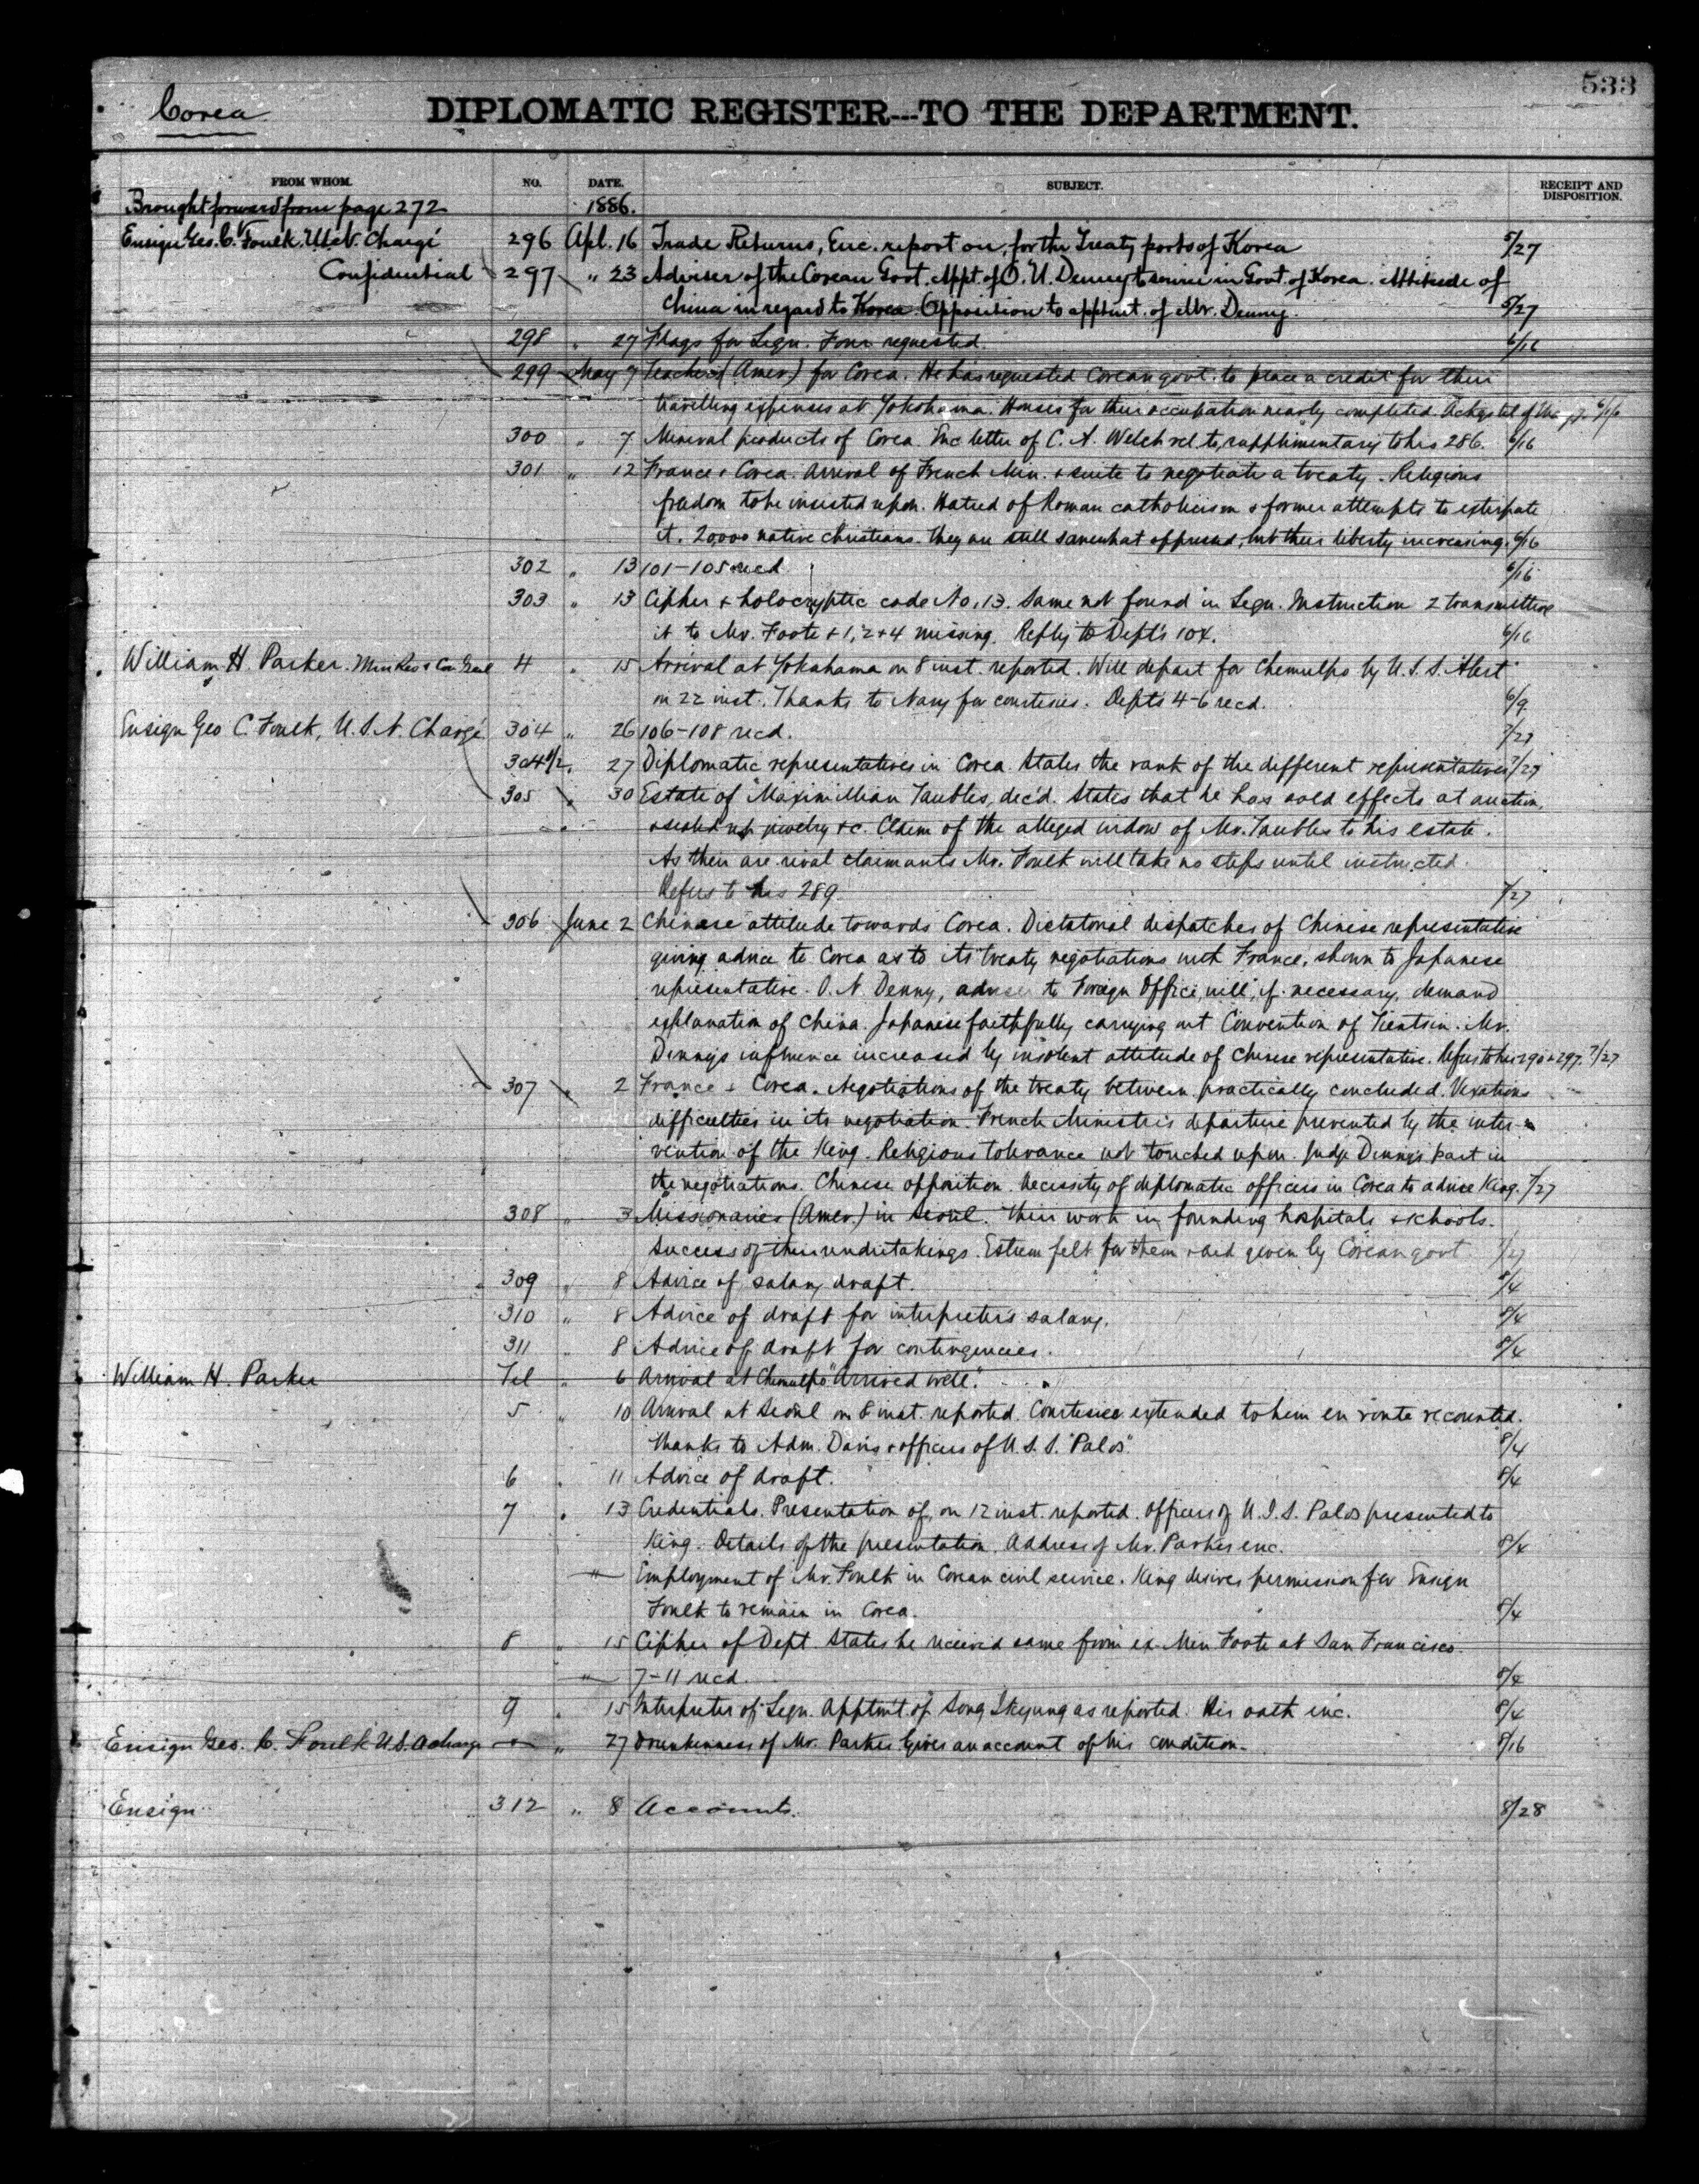 533
Corea
DIPLOMATIC REGISTER---TO THE DEPARTMENT.
FROM WHOM. NO. DATE. SUBJECT. RECEIPT AND DISPOSITION.
Brought forward from page 272 1886.
Ensign Geo. C. Foulk. U.S.N. Chargé 296 Apl. 16 Trade Returns, Enc. report on, for the Treaty ports of Korea 5/27
Confidential 297 " 23 Adviser of the Corean Govt. Appt. of O. N. Denny to service in Govt. of Korea. Attitude of
China in regard to Korea. Opposition to apptmt. of Mr. Denny. 5/27
298 " 27 Flags for Legn. Four requested. 6/16
299 May 7 Teachers (Amer.) for Corea. He has requested Corean govt. to place a credit for their
travelling expenses at Yokohama. Houses for their occupation nearly completed. Ackgs tel of 6/16
300 " 7 Mineral products of Corea. Enc letter of C. A. Welch rel. to, supplimentary to his 286. 6/16
301 " 12 France & Corea. Arrival of French Min. & suite to negotiate a treaty. Religious
freedom to be insisted upon. Hatred of Roman catholicism & former attempts to extirpate
it. 20,000 native christians. They are still somewhat oppressed, but their liberty increasing. 6/16
302 " 13 101-105 recd. 6/16
303 " 13 Cipher & holocryptic code No. 13. Same not found in Legn. Instruction 2 transmitting
it to Mr. Foote & 1, 2 & 4 missing. Reply to Dept's 104. 6/16
William H. Parker. Min Res & Con Genl 4 " 15 Arrival at Yokahama on 8 inst. reported. Will depart for Chemulpo by U.S.S. Alert
on 22 inst. Thanks to Navy for courtesies. Depts 4-6 recd. 6/9
Ensign Geo C. Foulk, U.S.N. Chargé 304 " 26 106-108 recd. 7/27
304 1/2 " 27 Diplomatic representatives in Corea. States the rank of the different representatives 7/27
305 " 30 Estate of Maximillian Taubles, dec'd. States that he has sold effects at auction,
& sealed up jewelry &c. Claim of the alleged widow of Mr. Taubles to his estate.
As their are rival claimants Mr. Foulk will take no steps until instructed.
Refers to his 289. 7/27
306 June 2 Chinese attitude towards Corea. Dictatorial dispatches of Chinese representative
giving advice to Corea as to its treaty negotiations with France, shown to Japanese
representative. O. N. Denny, adviser to Foreign Office, will, if necessary, demand
explanation of China. Japanese faithfully carrying out Convention of Tientsin. Mr.
Denny's influence increased by insolent attitude of Chinese representative. Refers to his 290 & 297. 7/27
307 " 2 France & Corea. Negotiations of the treaty between practically concluded. Vexatious
difficulties in its negotiation. French Minister's departure prevented by the inter-
vention of the King. Religious tolerance not touched upon. Judge Denny's part in
the negotiations. Chinese opposition. Necessity of diplomatic officers in Corea to advise King. 7/27
308 " 3 Missionaries (Amer.) in Seoul. Their work in founding hospitals & schools.
Success of their undertakings. Esteem felt for them & aid given by Corean govt 7/27
309 " 8 Advice of salary draft. 8/4
310 " 8 Advice of draft for interpreter's salary. 8/4
311 " 8 Advice of draft for contingencies. 8/4
William H. Parker Tel " 6 Arrival at Chemulpo "Arrived well".
5 " 10 Arrival at Seoul on 8 inst. reported. Courtesies extended to him en route recounted.
Thanks to Adm. Davis & officers of U.S.S. "Palos". 8/4
6 " 11 Advice of draft. 8/4
7 " 13 Credentials. Presentation of, on 12 inst. reported. Officers of U.S.S. Palos presented to
King. Details of the presentation. Address of Mr. Parker enc. 8/4
" Employment of Mr. Foulk in Corean civil service. King desires permission for Ensign
Foulk to remain in Corea. 8/4
8 " 15 Cipher of Dept. States he received same from ex-Min Foote at San Francisco.
" 7-11 recd. 8/4
9 " 15 Interpreter of Legn. Apptm't of Song as reported. His oath inc. 8/4
Ensign Geo. C. Foulk U.S. " 27 Drunkenness of Mr. Parker. Gives an account of his condition. 8/16
Ensign 312 " 8 Accounts. 8/28